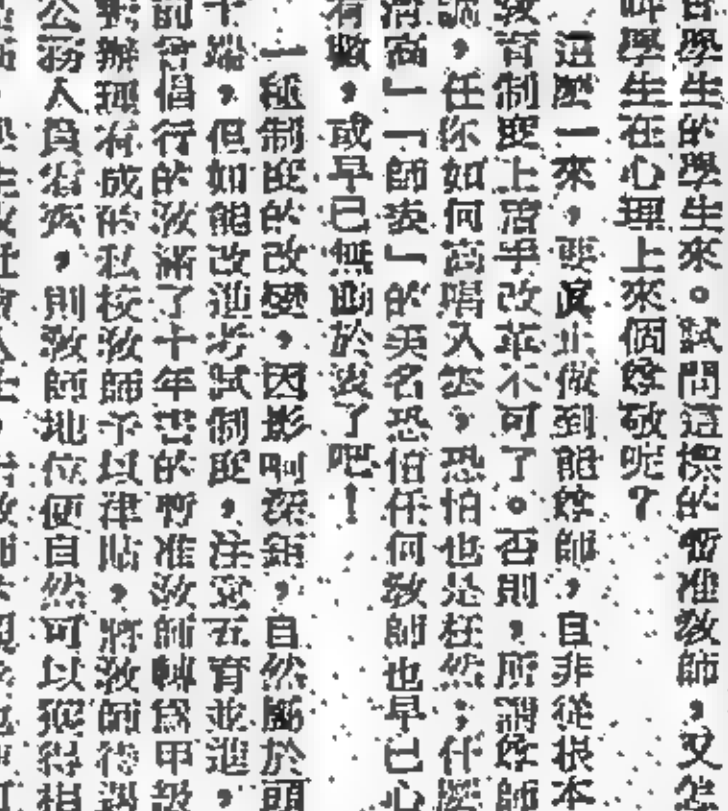 學生的學生來。試問這樣的暫准教師，又怎
叫學生在心理上來個尊敬呢？
這麼一來，要真正做到能尊師，自非從根本
教育制度上着手改革不可了。否則，所謂尊師
，任你如何高唱入雲，恐怕也是枉然；什麼
清高」「師表」的美名恐怕任何教師也早已心
有數，或早已無動於衷了吧！
一種制度的改變，因影响深鉅，自然屬於頭
千端，但如能改進考試制度，注意五育並進，
前會倡行的教滿了十年書的暫准教師轉為甲級
對辦理有成的私校教師予以津貼，將教師待遇
公務人員看齊，則教師地位便自然可以獲得